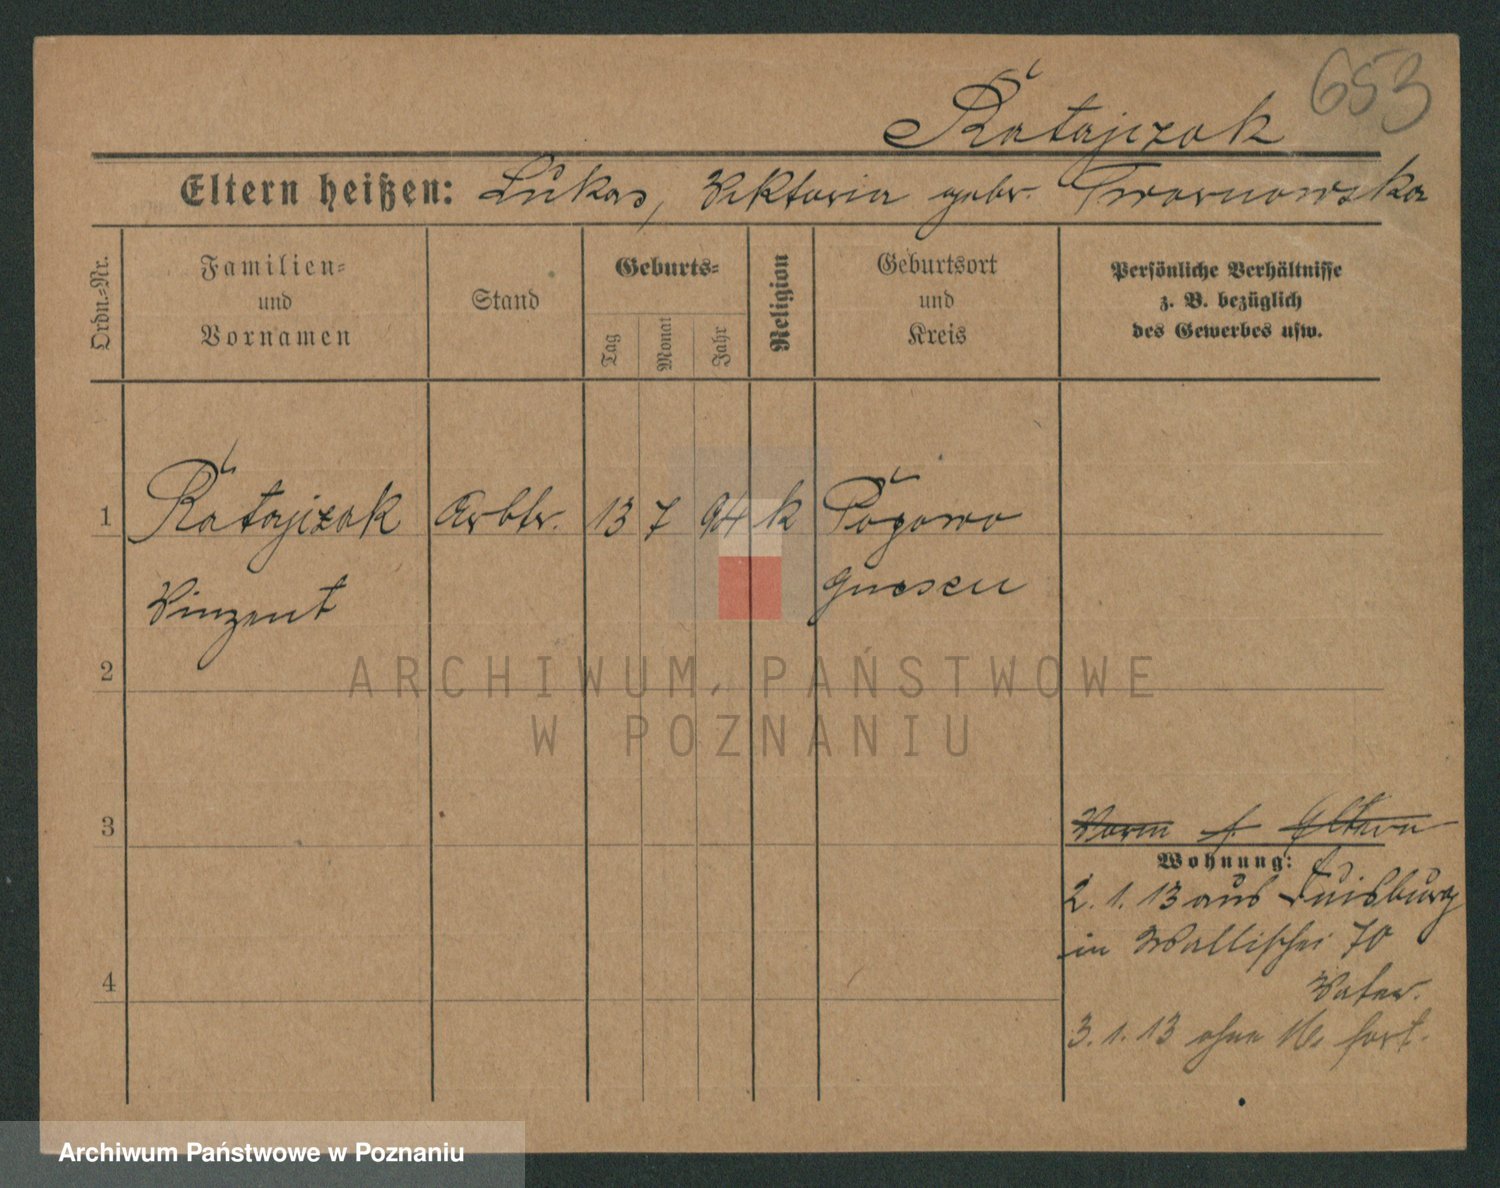 653
Ratajczak
Eltern heißen: Lukas, Viktoria gebr. Twornowska
Ordn.-Nr.
Familien-
und
Vornamen
Stand
Geburts-
Tag
Monat
Jahr
Religion
Geburtsort
und
Kreis
Persönliche Verhältnisse
z. B. bezüglich
des Gewerbes usw.
1 Ratajczak Arbtr. 13 7 94 k Pogorzo
Vinzent Gnesen
2
ARCHIWUM PAŃSTWOWE
W POZNANIU
3
Vorm f. Eltern
Wohnung:
2. 1. 13 aus Duisburg
in Wallischei 70
4
Vater.
3. 1. 13 ohne M. fort.
Archiwum Państwowe w Poznaniu